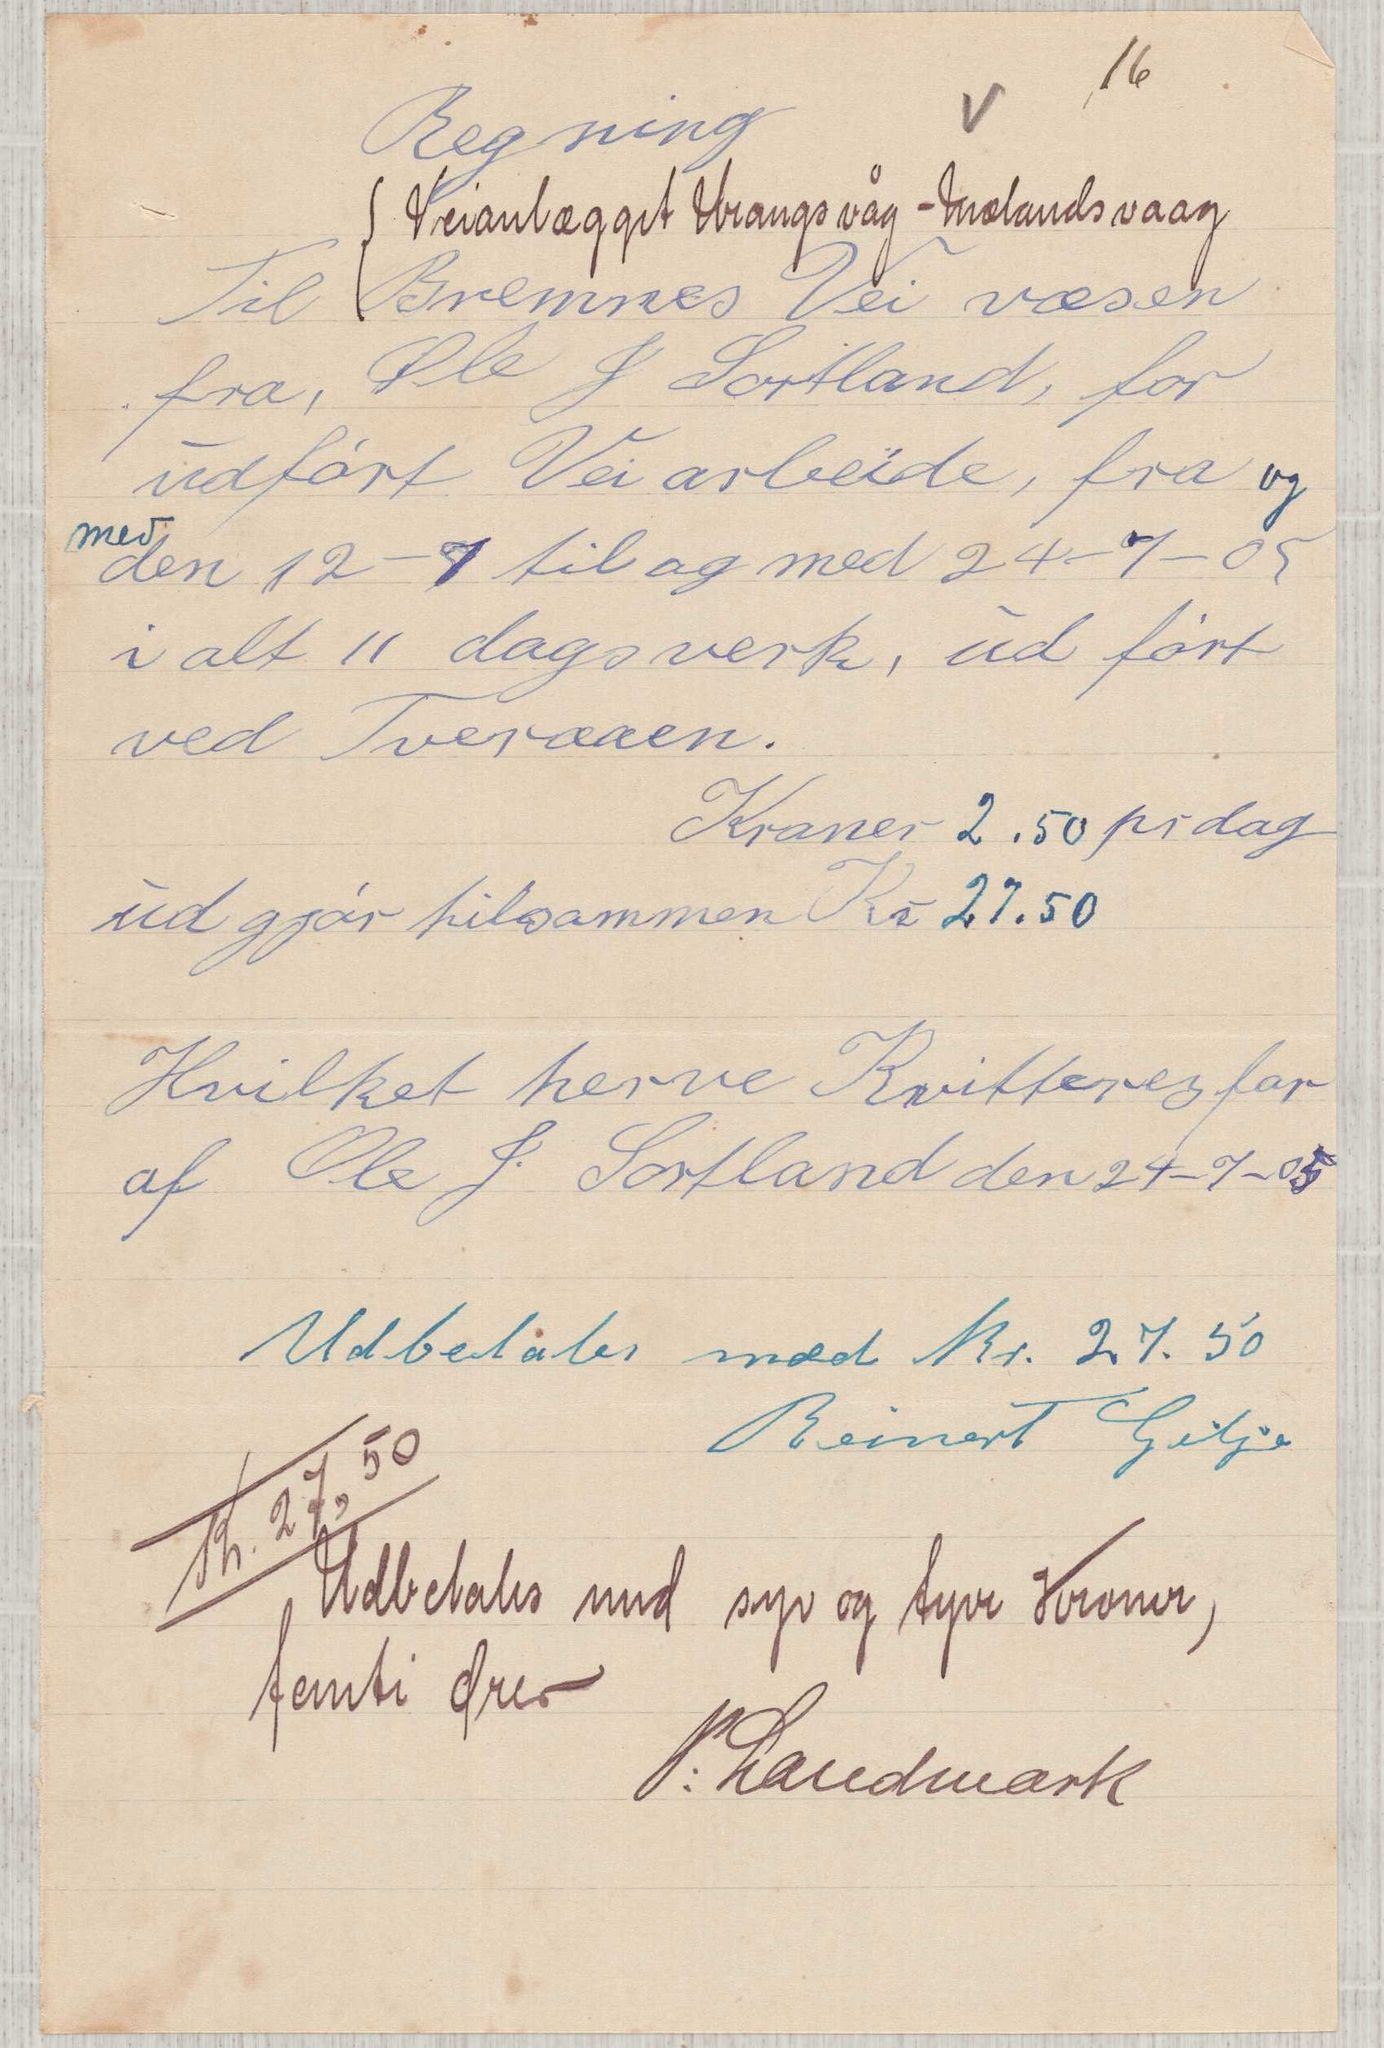 16
V
Regning
{ Veianlægget Urangsvåg - Mælandsvaag
Til Bremnes Vei væsen
fra, Ole J Sortland, for
udført Vei arbeide, fra og
med
den 12-7 til og med 24-7-05
i alt 11 dagsverk, ud ført
ved Tveraaen.
Kroner 2.50 pr dag
ud gjør tilsammen Kr 27.50
Hvilket herve Kvitteres for
af Ole J. Sortland den 24-7-05
Udbetales med Kr. 27.50
Reinert Gilje
Kr. 27,50
Udbetales med syv og tyve Kroner,
femti ører
P. Landmark